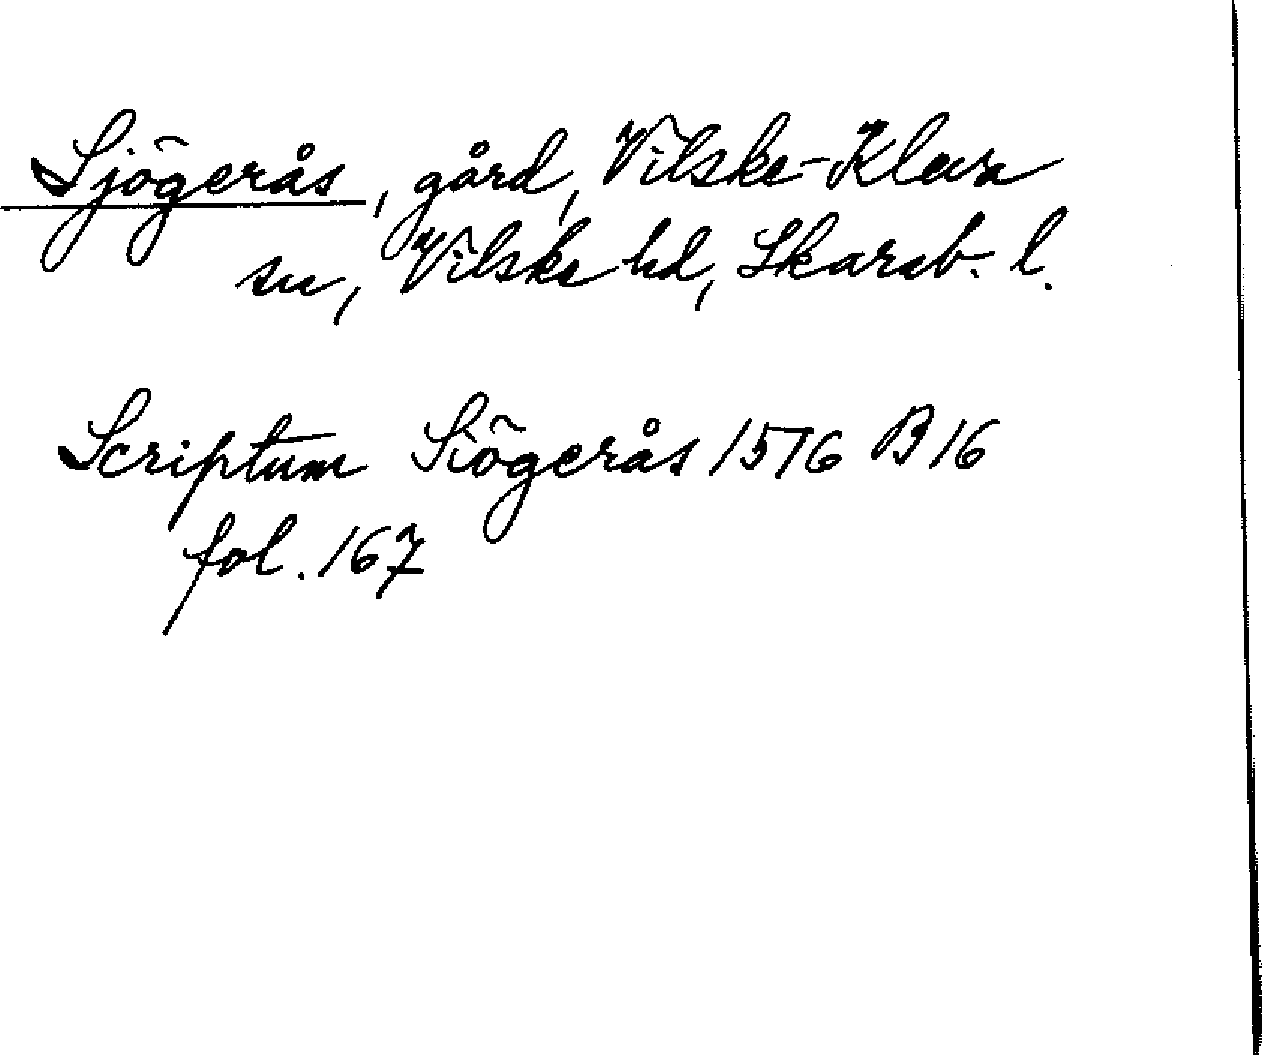 Sjögerås, gård, Vilske-Kleva
sn, Vilske hd, Skarab. l.
Scriptum Siögerås 1576 B 16
fol. 167